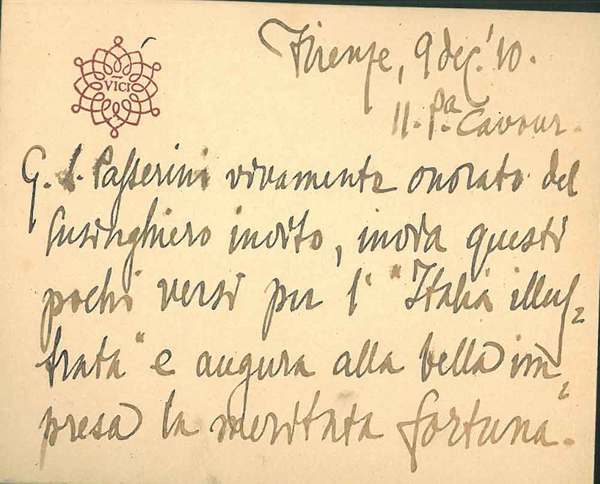 VICI
Firenze, 9 dec.' 10.
11. P.a Cavour.
G. L. Passerini vivamente onorato del
lusinghiero invito, invia questi
pochi versi per l' "Italia illus=
trata" e augura alla bella im=
presa la meritata fortuna.